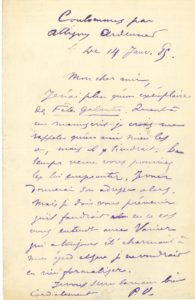 Coulommes par
Attigny Ardennes
Le 14 Janv. 85
Mon cher ami,
J'ai plus qu'un exemplaire
de Fêtes galantes. Quant
au manuscrit je crois me
rappeler qu'un ami m'a
mais il y tiendrait. Le
temps venu vous pourriez
les lui emprunter. J'vous
donnerai son adresse alors.
Mais je dois vous prévenir
qu'il faudrait en ce cas
vous entendre avec Vanier
qui a toujours été charmant à
mon égard et que je ne voudrais
en rien formaliser.
Je vous serre la main bien
cordialement P.V.